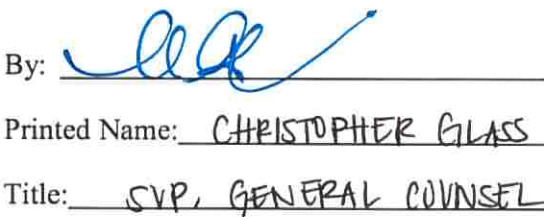 By:
Printed Name: CHRISTOPHER GLASS
Title: SVP, GENERAL COUNSEL